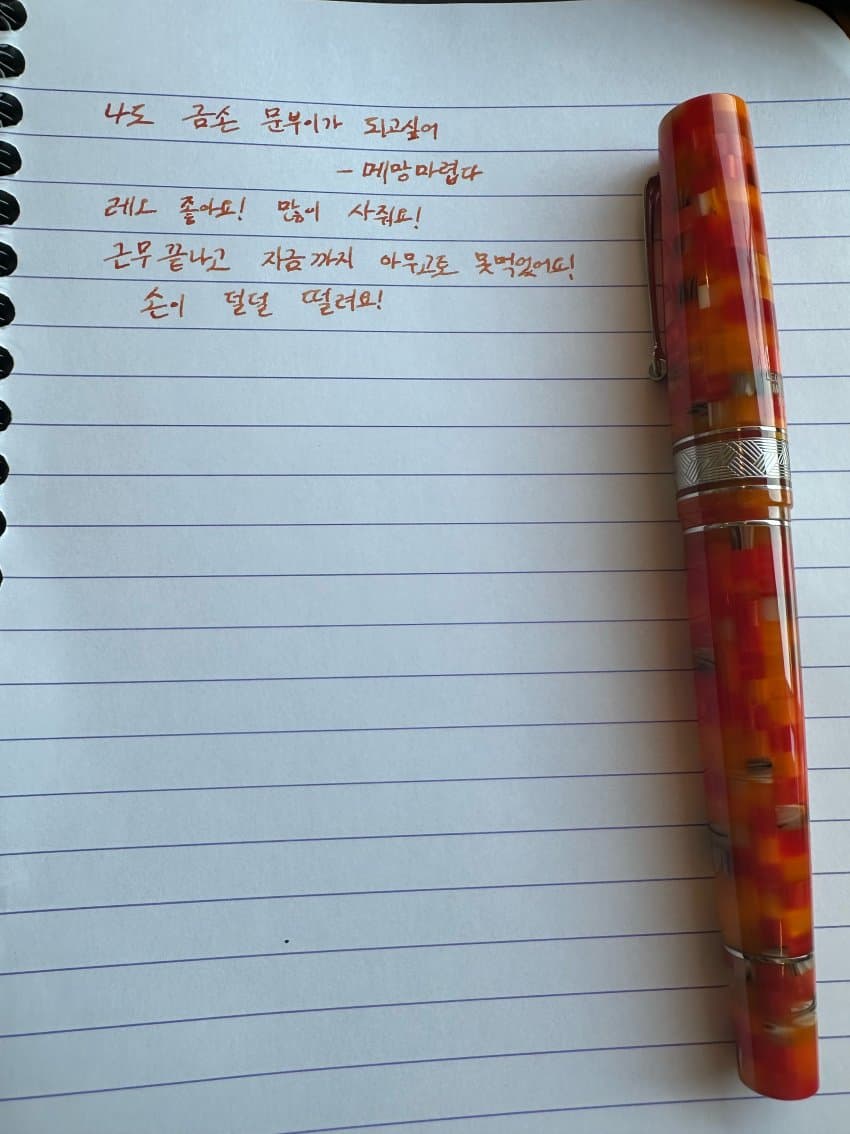 나도 금손 문부이가 되고싶어
- 메망마렵다
레오 좋아요! 많이 사줘요!
근무 끝나고 지금까지 아무고토 못먹었어요!
손이 덜덜 떨려요!